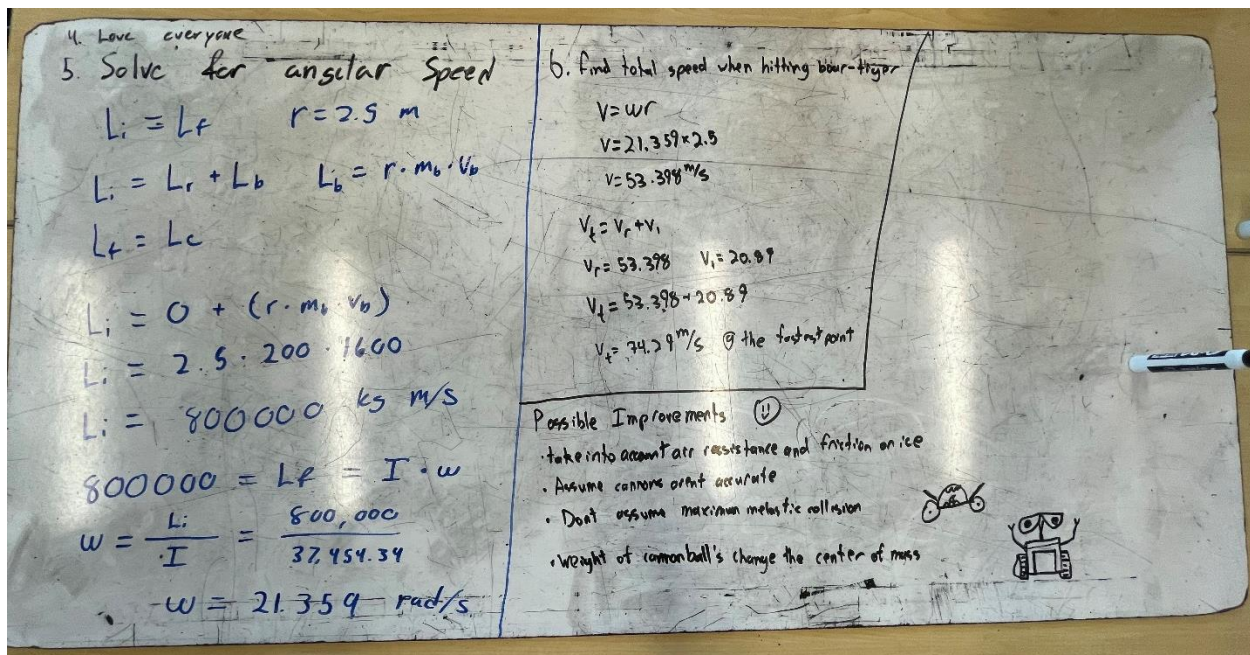 4. Love everyone
5. Solve for angular Speed
Li = Lf r = 2.5 m
Li = Lr + Lb Lb = r · mb · Vb
Lf = Lc
Li = 0 + (r · mb Vb)
Li = 2.5 · 200 · 1600
Li = 800000 kg m/s
800000 = Lf = I · w
w = Li / I = 800,000 / 37,454.34
w = 21.359 rad/s
6. find total speed when hitting
V = wr
V = 21.359 × 2.5
V = 53.398 m/s
Vt = Vr + Vi
Vr = 53.398 Vi = 20.89
Vt = 53.398 + 20.89
Vt = 74.29 m/s @ the fastest point
Possible Improvements
· take into account air ressistance and friction on ice
· Assume cannons arent accurate
· Don't assume maximum collision
· weight of cannonball's change the center of mass